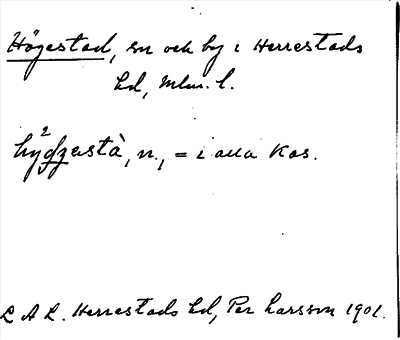 Högestad, sn och by i Herrestads
hd, Mlm. l.
hy²dzastà, n., = i alla kas.
L A L. Herrestads hd, Per Larsson 1901.